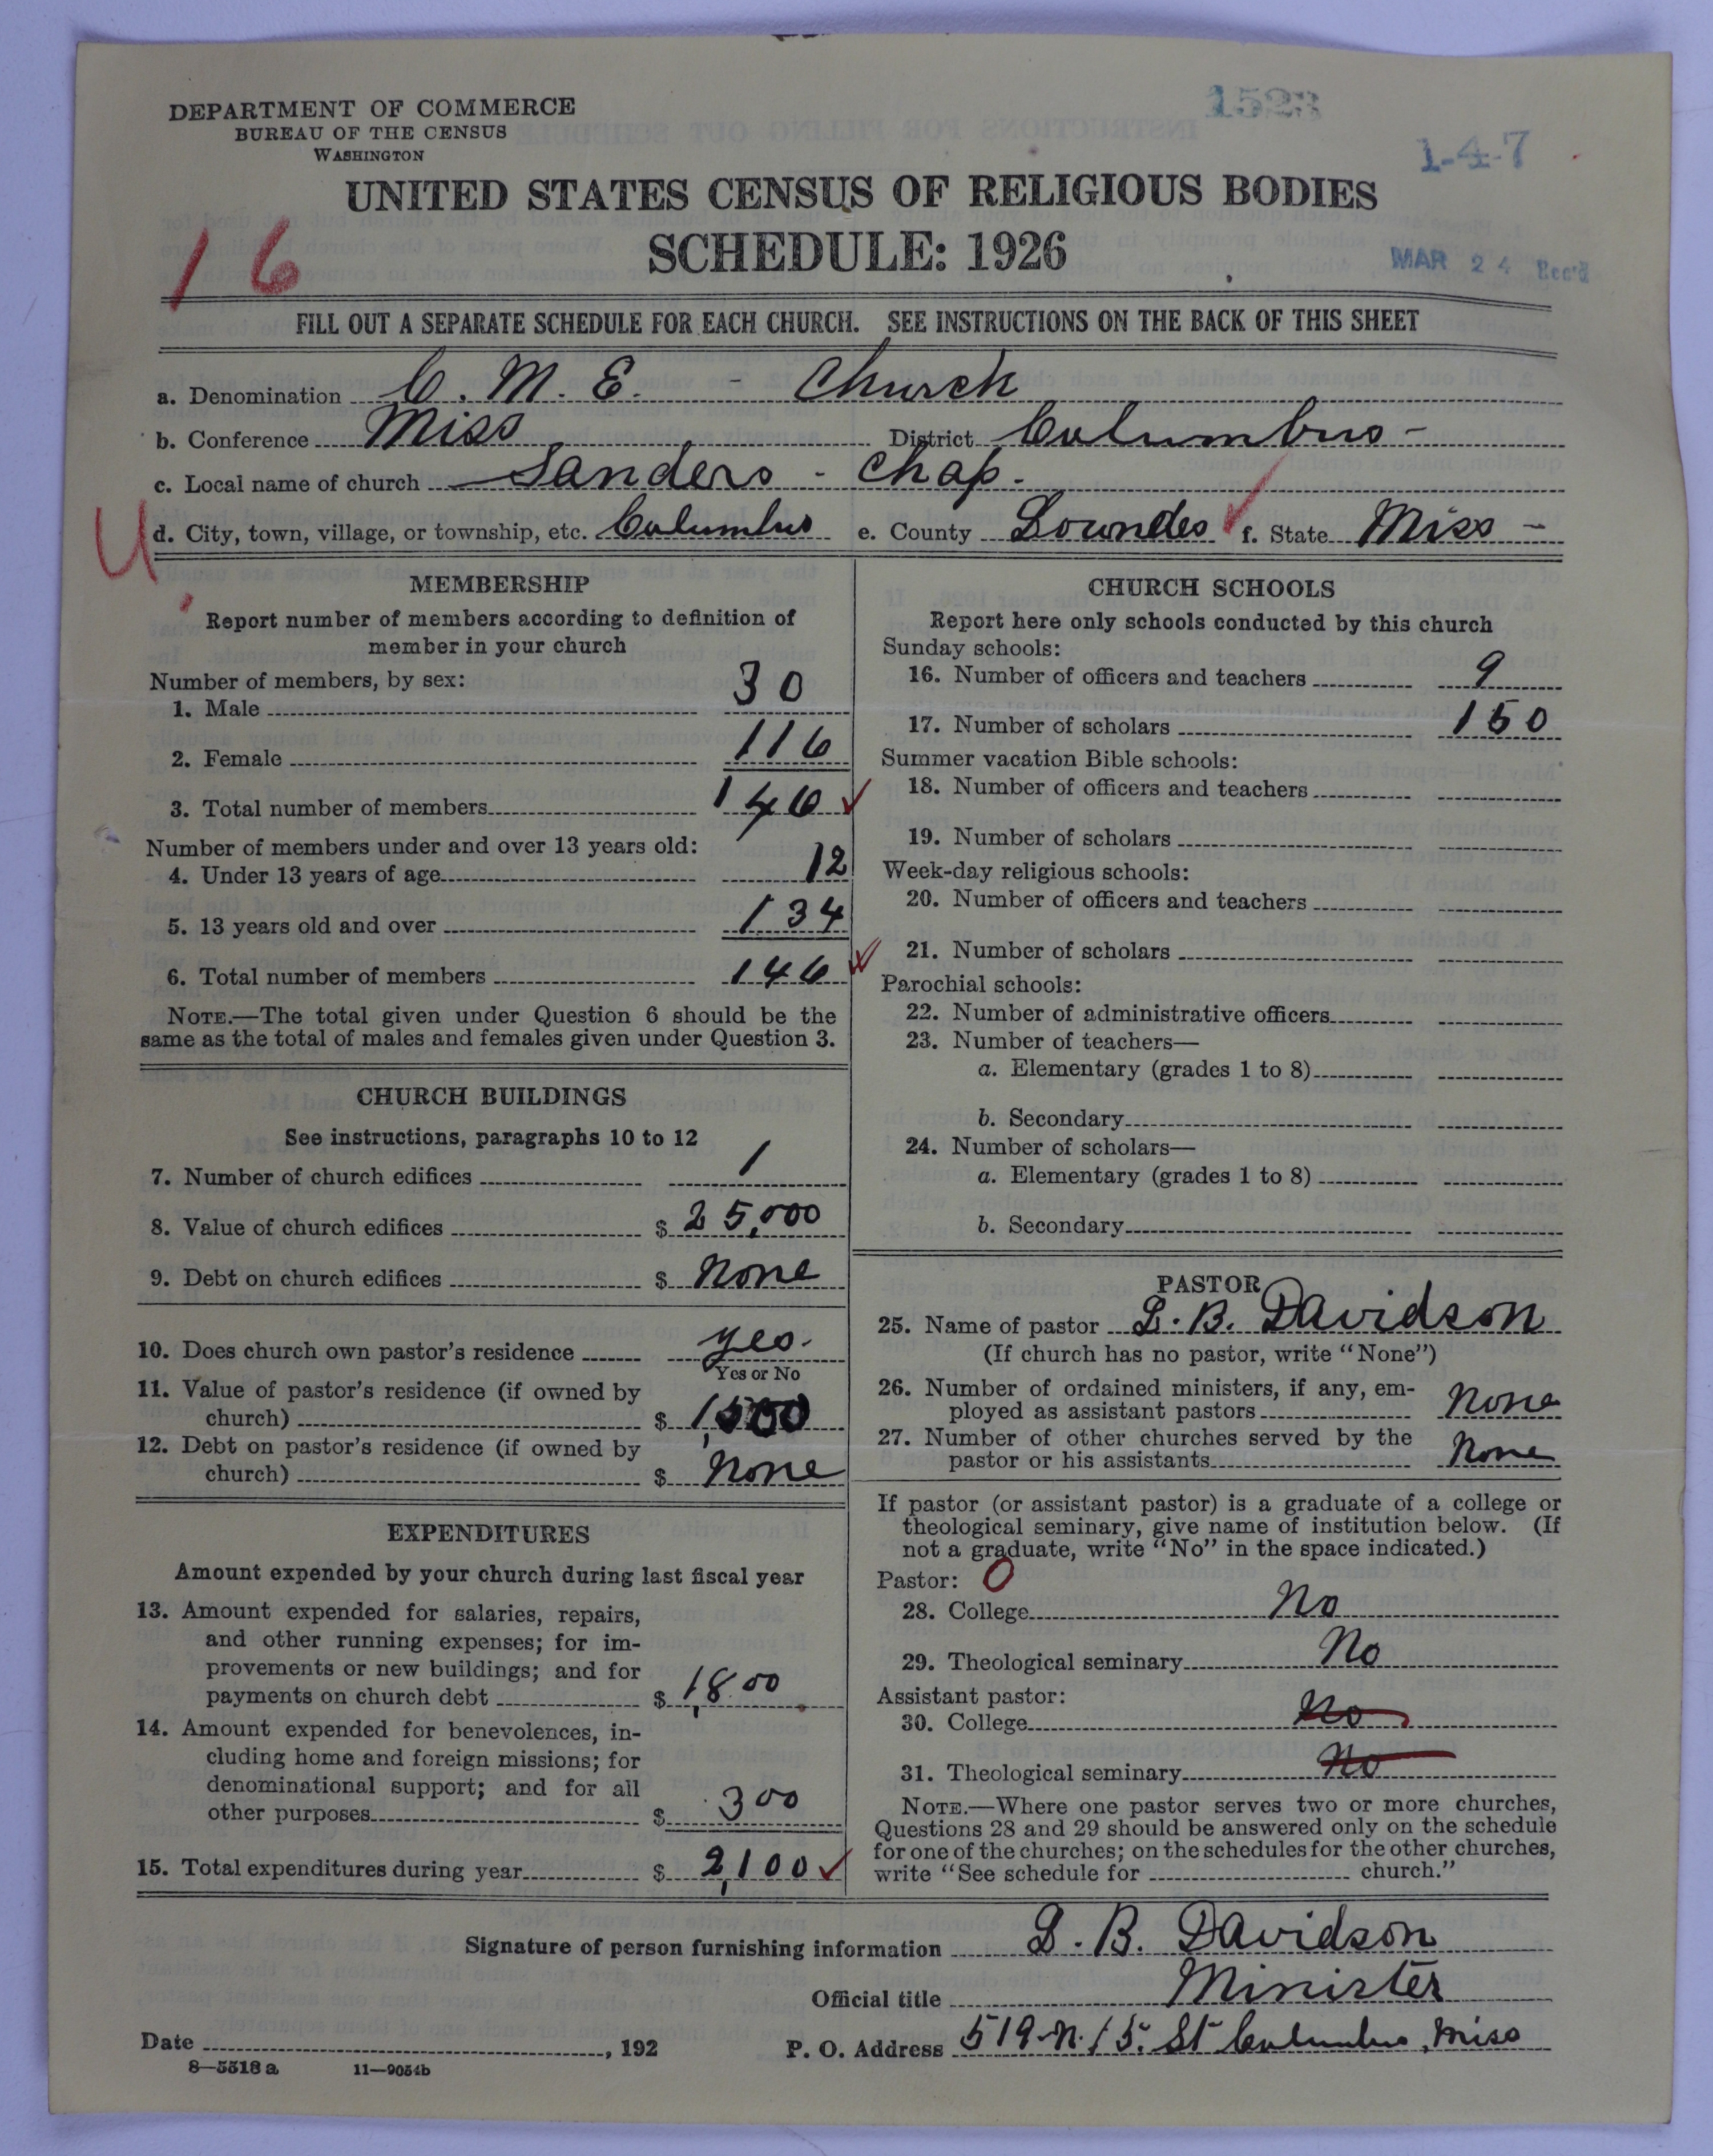 1523
DEPARTMENT OF COMMERCE
BUREAU OF THE CENSUS
WASHINGTON
1-4-7
UNITED STATES CENSUS OF RELIGIOUS BODIES
SCHEDULE: 1926
MAR 24 Rec'd
16
FILL OUT A SEPARATE SCHEDULE FOR EACH CHURCH. SEE INSTRUCTIONS ON THE BACK OF THIS SHEET
a. Denomination C. M. E. - Church
b. Conference Miss District Columbus -
c. Local name of church Sanders - Chap.
U d. City, town, village, or township, etc. Columbus e. County Lowndes f. State Miss -
MEMBERSHIP
Report number of members according to definition of
member in your church
Number of members, by sex:
1. Male 30
2. Female 116
3. Total number of members 146
Number of members under and over 13 years old:
4. Under 13 years of age 12
5. 13 years old and over 134
6. Total number of members 146
NOTE.—The total given under Question 6 should be the
same as the total of males and females given under Question 3.
CHURCH BUILDINGS
See instructions, paragraphs 10 to 12
7. Number of church edifices 1
8. Value of church edifices $ 25,000
9. Debt on church edifices $ None
10. Does church own pastor's residence yes.
Yes or No
11. Value of pastor's residence (if owned by
church) $ 1,500
12. Debt on pastor's residence (if owned by
church) $ None
EXPENDITURES
Amount expended by your church during last fiscal year
13. Amount expended for salaries, repairs,
and other running expenses; for im-
provements or new buildings; and for
payments on church debt $ 1,800
14. Amount expended for benevolences, in-
cluding home and foreign missions; for
denominational support; and for all
other purposes $ 300
15. Total expenditures during year $ 2,100
CHURCH SCHOOLS
Report here only schools conducted by this church
Sunday schools:
16. Number of officers and teachers 9
17. Number of scholars 150
Summer vacation Bible schools:
18. Number of officers and teachers
19. Number of scholars
Week-day religious schools:
20. Number of officers and teachers
21. Number of scholars
Parochial schools:
22. Number of administrative officers
23. Number of teachers—
a. Elementary (grades 1 to 8)
b. Secondary
24. Number of scholars—
a. Elementary (grades 1 to 8)
b. Secondary
PASTOR
25. Name of pastor L. B. Davidson
(If church has no pastor, write "None")
26. Number of ordained ministers, if any, em-
ployed as assistant pastors None
27. Number of other churches served by the
pastor or his assistants None
If pastor (or assistant pastor) is a graduate of a college or
theological seminary, give name of institution below. (If
not a graduate, write "No" in the space indicated.)
Pastor: 0
28. College No
29. Theological seminary No
Assistant pastor:
30. College No
31. Theological seminary No
NOTE.—Where one pastor serves two or more churches,
Questions 28 and 29 should be answered only on the schedule
for one of the churches; on the schedules for the other churches,
write "See schedule for church."
Signature of person furnishing information L. B. Davidson
Official title Minister
Date , 192 P. O. Address 519-N. 15. St Columbus, Miss
8—5518 a 11—9054b